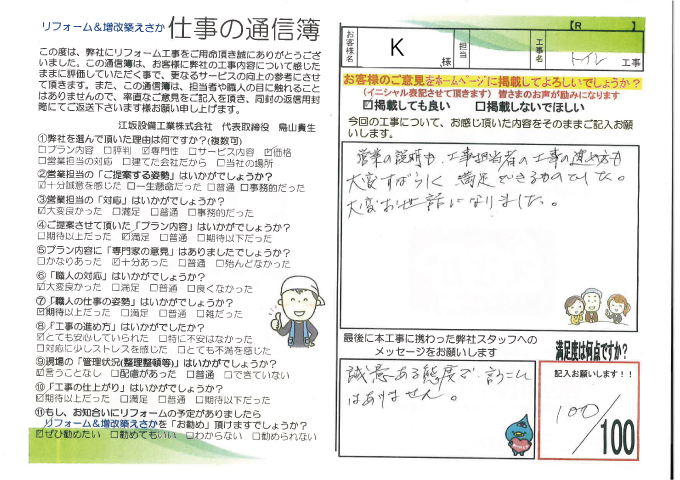 リフォーム&増改築えさか 仕事の通信簿
この度は、弊社にリフォーム工事をご用命頂き誠にありがとうござ
いました。この通信簿は、お客様に弊社の工事内容について感じた
ままに評価していただく事で、更なるサービスの向上の参考にさせ
て頂きます。また、この通信簿は、担当者や職人の目に触れること
はありませんので、率直なご意見をご記入を頂き、同封の返信用封
筒にてご返送下さいます様お願い申し上げます。
江坂設備工業株式会社 代表取締役 島山貴生
①弊社を選んで頂いた理由は何ですか?(複数可)
□プラン内容 □評判 ☑専門性 □サービス内容 ☑価格
□営業担当の対応 □建てた会社だから □当社の場所
②営業担当の「ご提案する姿勢」はいかがでしょうか?
☑十分誠意を感じた □一生懸命だった □普通 □事務的だった
③営業担当の「対応」はいかがでしょうか?
☑大変良かった □満足 □普通 □事務的だった
④ご提案させて頂いた「プラン内容」はいかがでしょうか?
□期待以上だった ☑満足 □普通 □期待以下だった
⑤プラン内容に「専門家の意見」はありましたでしょうか?
□かなりあった ☑十分あった □普通 □殆んどなかった
⑥「職人の対応」はいかがでしょうか?
☑大変良かった □満足 □普通 □良くなかった
⑦「職人の仕事の姿勢」はいかがでしょうか?
☑期待以上だった □満足 □普通 □雑だった
⑧「工事の進め方」はいかがでしたか?
☑とても安心していられた □特に不安はなかった
□対応に少しストレスを感じた □とても不満を感じた
⑨現場の「管理状況(整理整頓等)」はいかがでしょうか?
☑言うことなし □配慮があった □普通 □できていない
⑩「工事の仕上がり」はいかがでしょうか?
☑期待以上だった □満足 □普通 □期待以下だった
⑪もし、お知合いにリフォームの予定がありましたら
リフォーム&増改築えさかを「お勧め」頂けますでしょうか?
☑ぜひ勧めたい □勧めてもいい □わからない □勧められない
【R 】
お客様名 K 様 担当 工事名 トイレ 工事
お客様のご意見をホームページに掲載してよろしいでしょうか?
(イニシャル表記させて頂きます) 皆さまのお声が励みになります
☑掲載しても良い □掲載しないでほしい
今回の工事について、お感じ頂いた内容をそのままご記入お願
いします。
営業の説明も、工事担当者の工事の進め方も
大変すばらしく満足できるものでした。
大変お世話になりました。
最後に本工事に携わった弊社スタッフへの
メッセージをお願いします
誠意ある態度で、言うことはありません。
満足度は何点ですか?
記入お願いします!!
100/100